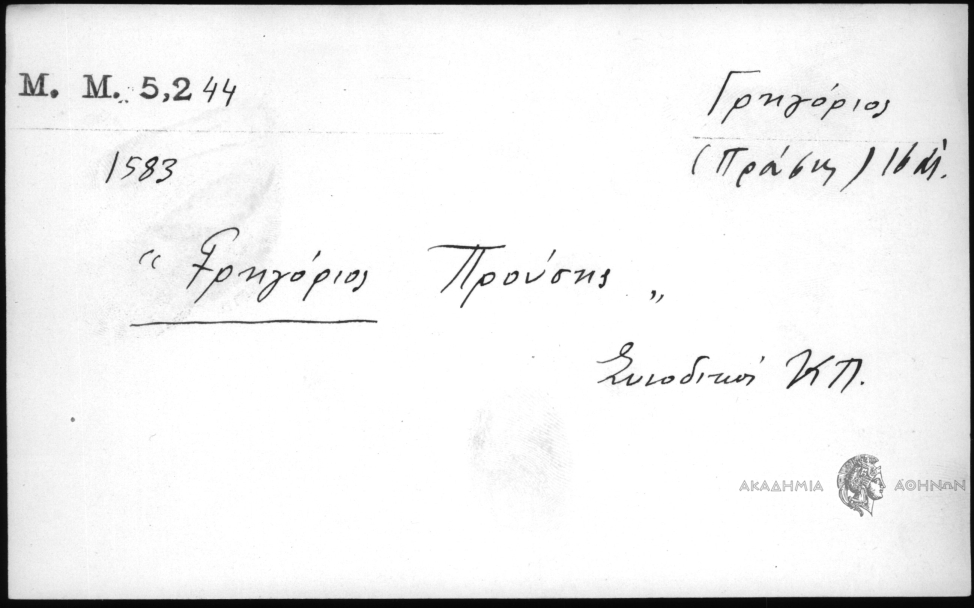 M. M. 5,244
Γρηγόριος
1583
(Πράσης) 16 αἰ.
“ Γρηγόριος Προύσης „
Συνοδικοί ΚΠ.
ΑΚΑΔΗΜΙΑ ΑΘΗΝΩΝ